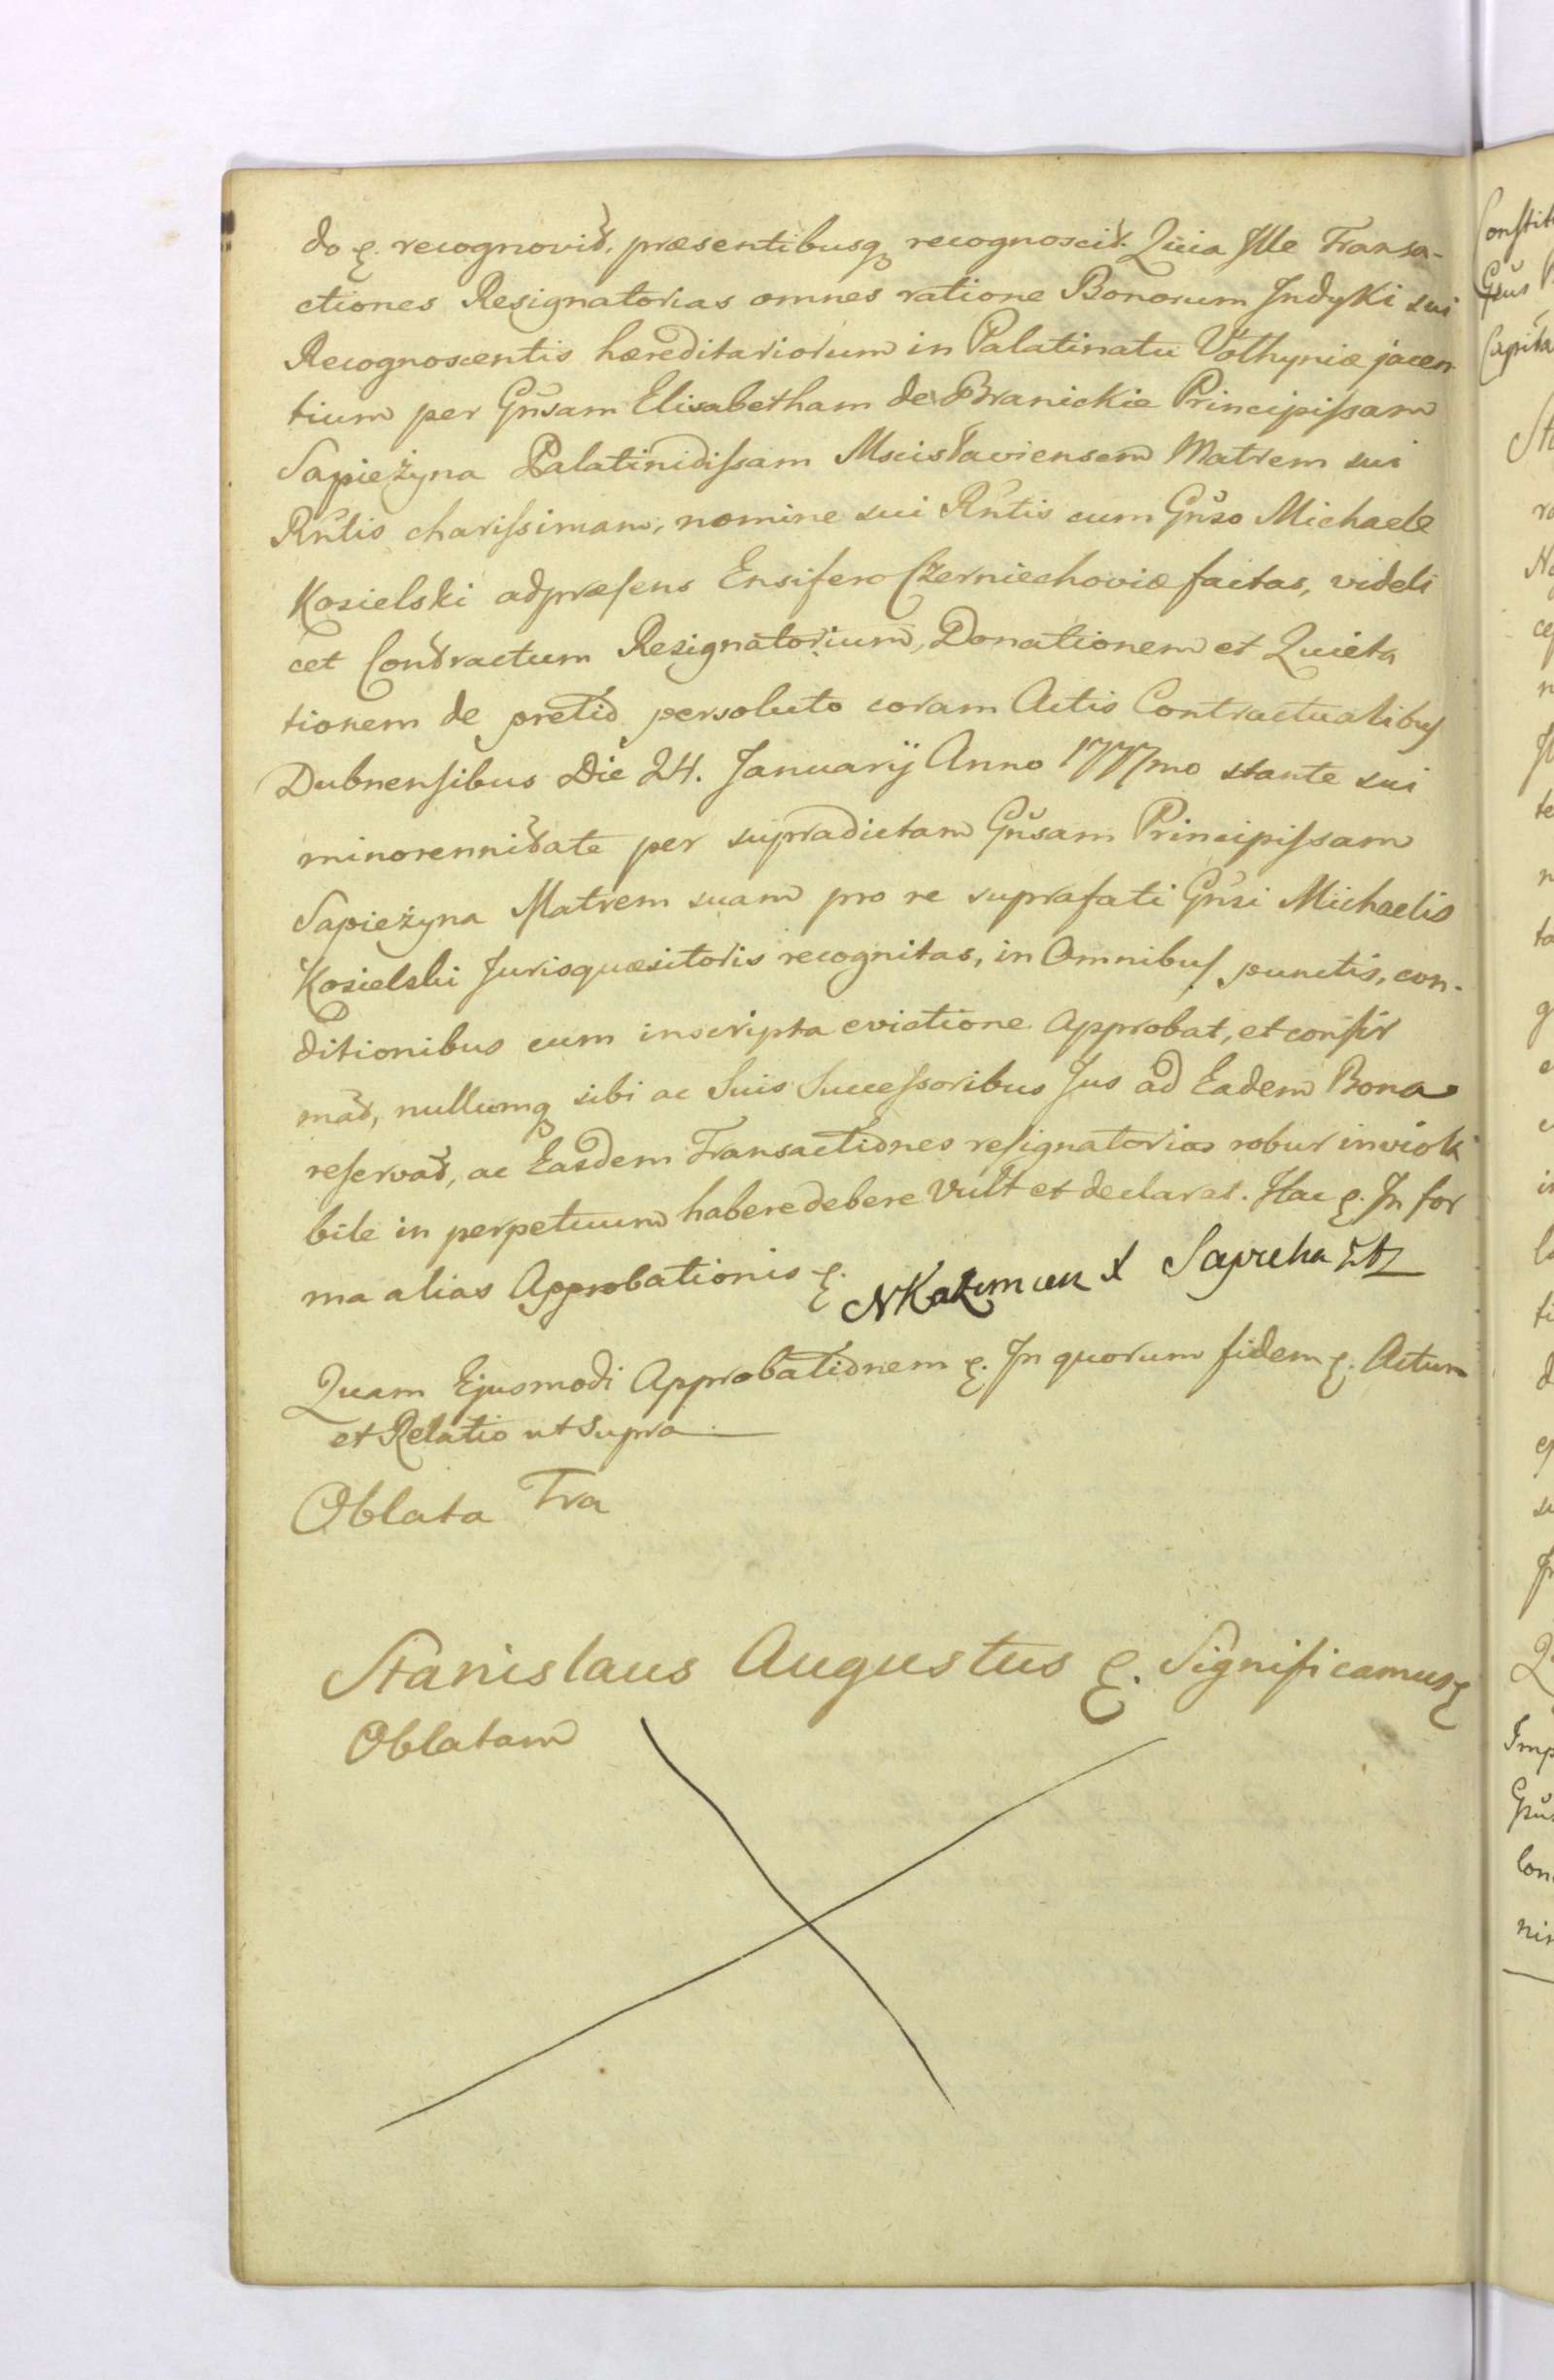 do etc. recognovit, præsentibusq recognoscit. Quia Ille Transa-
ctiones Resignatorias omnes ratione Bonorum Indyki sui
Recognoscentis hæreditariorum in Palatinatu Volhyniæ jacen
tium per Gnsam Elisabetham de Branickie Principissam
Sapieżyna Palatinidissam Mscislaviensem Matrem sui
Rntis charissimam, nomine sui Rntis cum Gnso Michaele
Kozielski adpræsens Ensifero Czerniechoviæ factas, videli
cet Contractum Resignatorium, Donationem et Quieta
tionem de pretio persoluto coram Actis Contractualibus
Dubnensibus Die 24. Januarij Anno 1777mo stante sui
minorennitate per supradictam Gnsam Principissam
Sapieżyna Matrem suam pro re suprafati Gnsi Michaelis
Kozielski Jurisquæsitoris recognitas, in Omnibus punctis, con-
ditionibus cum inscripta evictione Approbat, et confir
mat, nullumq sibi ac Suis Successoribus Jus ad Eadem Bona
reservat, ac Easdem Transactiones resignatorias robur inviola
bile in perpetuum habere debere Vult et declarat. Hac etc. In for
ma alias Approbationis etc.
NKazimierz X Sapieha
Quam Ejusmodi Approbationem etc. In quorum fidem etc. Actum
et Relatio ut supra
Oblata Tra
Stanislaus Augustus etc. Significamus etc
Oblatam